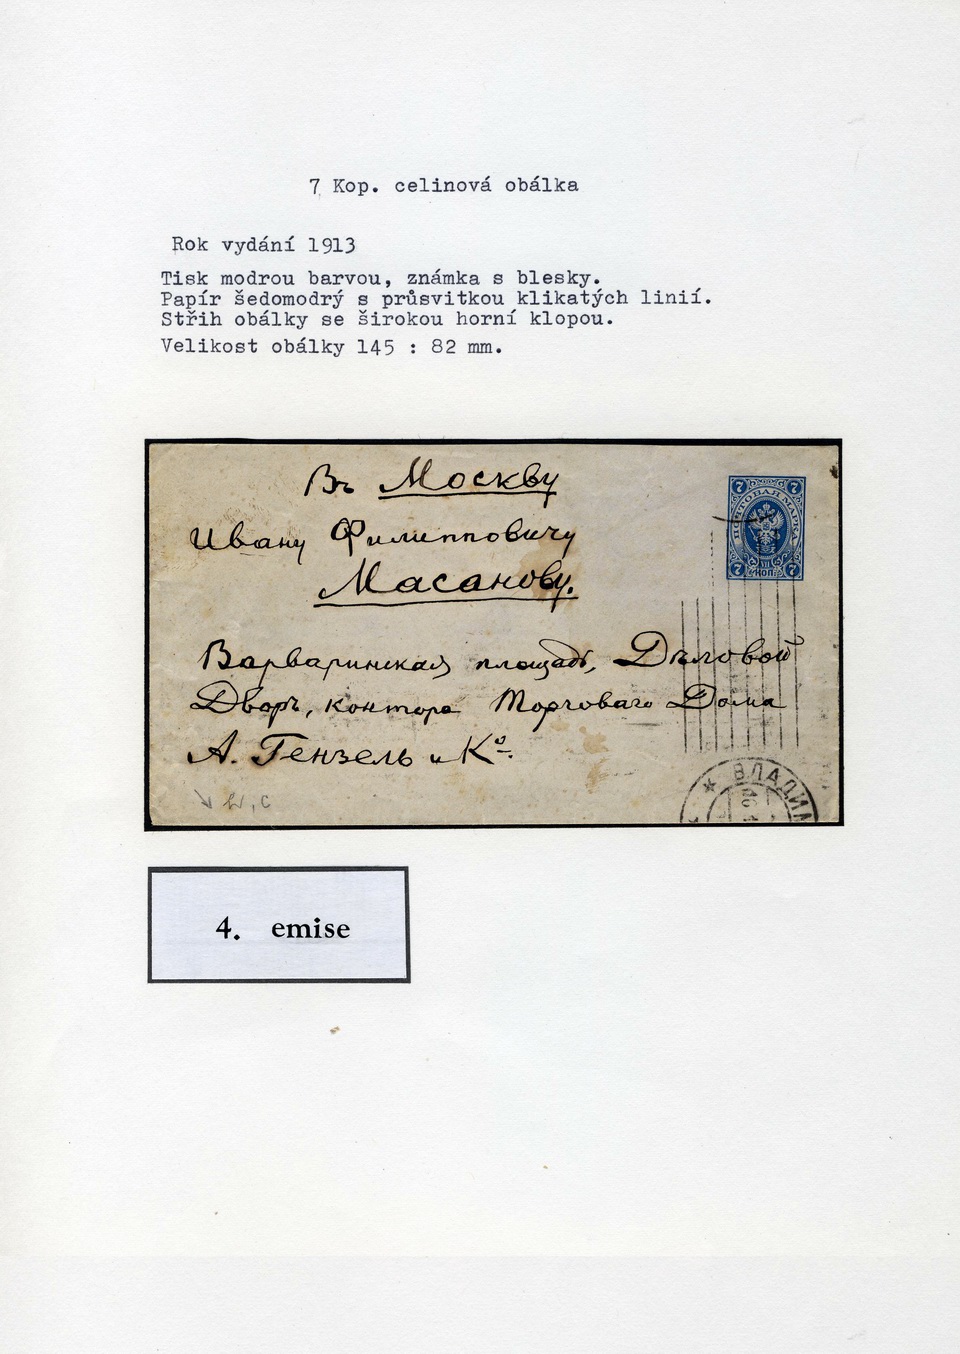 7 Kop. celinová obálka
Rok vydání 1913
Tisk modrou barvou, známka s blesky.
Papír šedomodrý s průsvitkou klikatých linií.
Střih obálky se širokou horní klopou.
Velikost obálky 145 : 82 mm.
Въ Москву
Ивану Филипповичу
Масанову.
7 7
ПОЧТОВАЯ МАРКА
КОП.
7 7
Варваринская площадь, Дѣловой
Дворъ, контора Торговаго Дома
А. Гензель и Ко.
ВЛАДИМ
4. emise